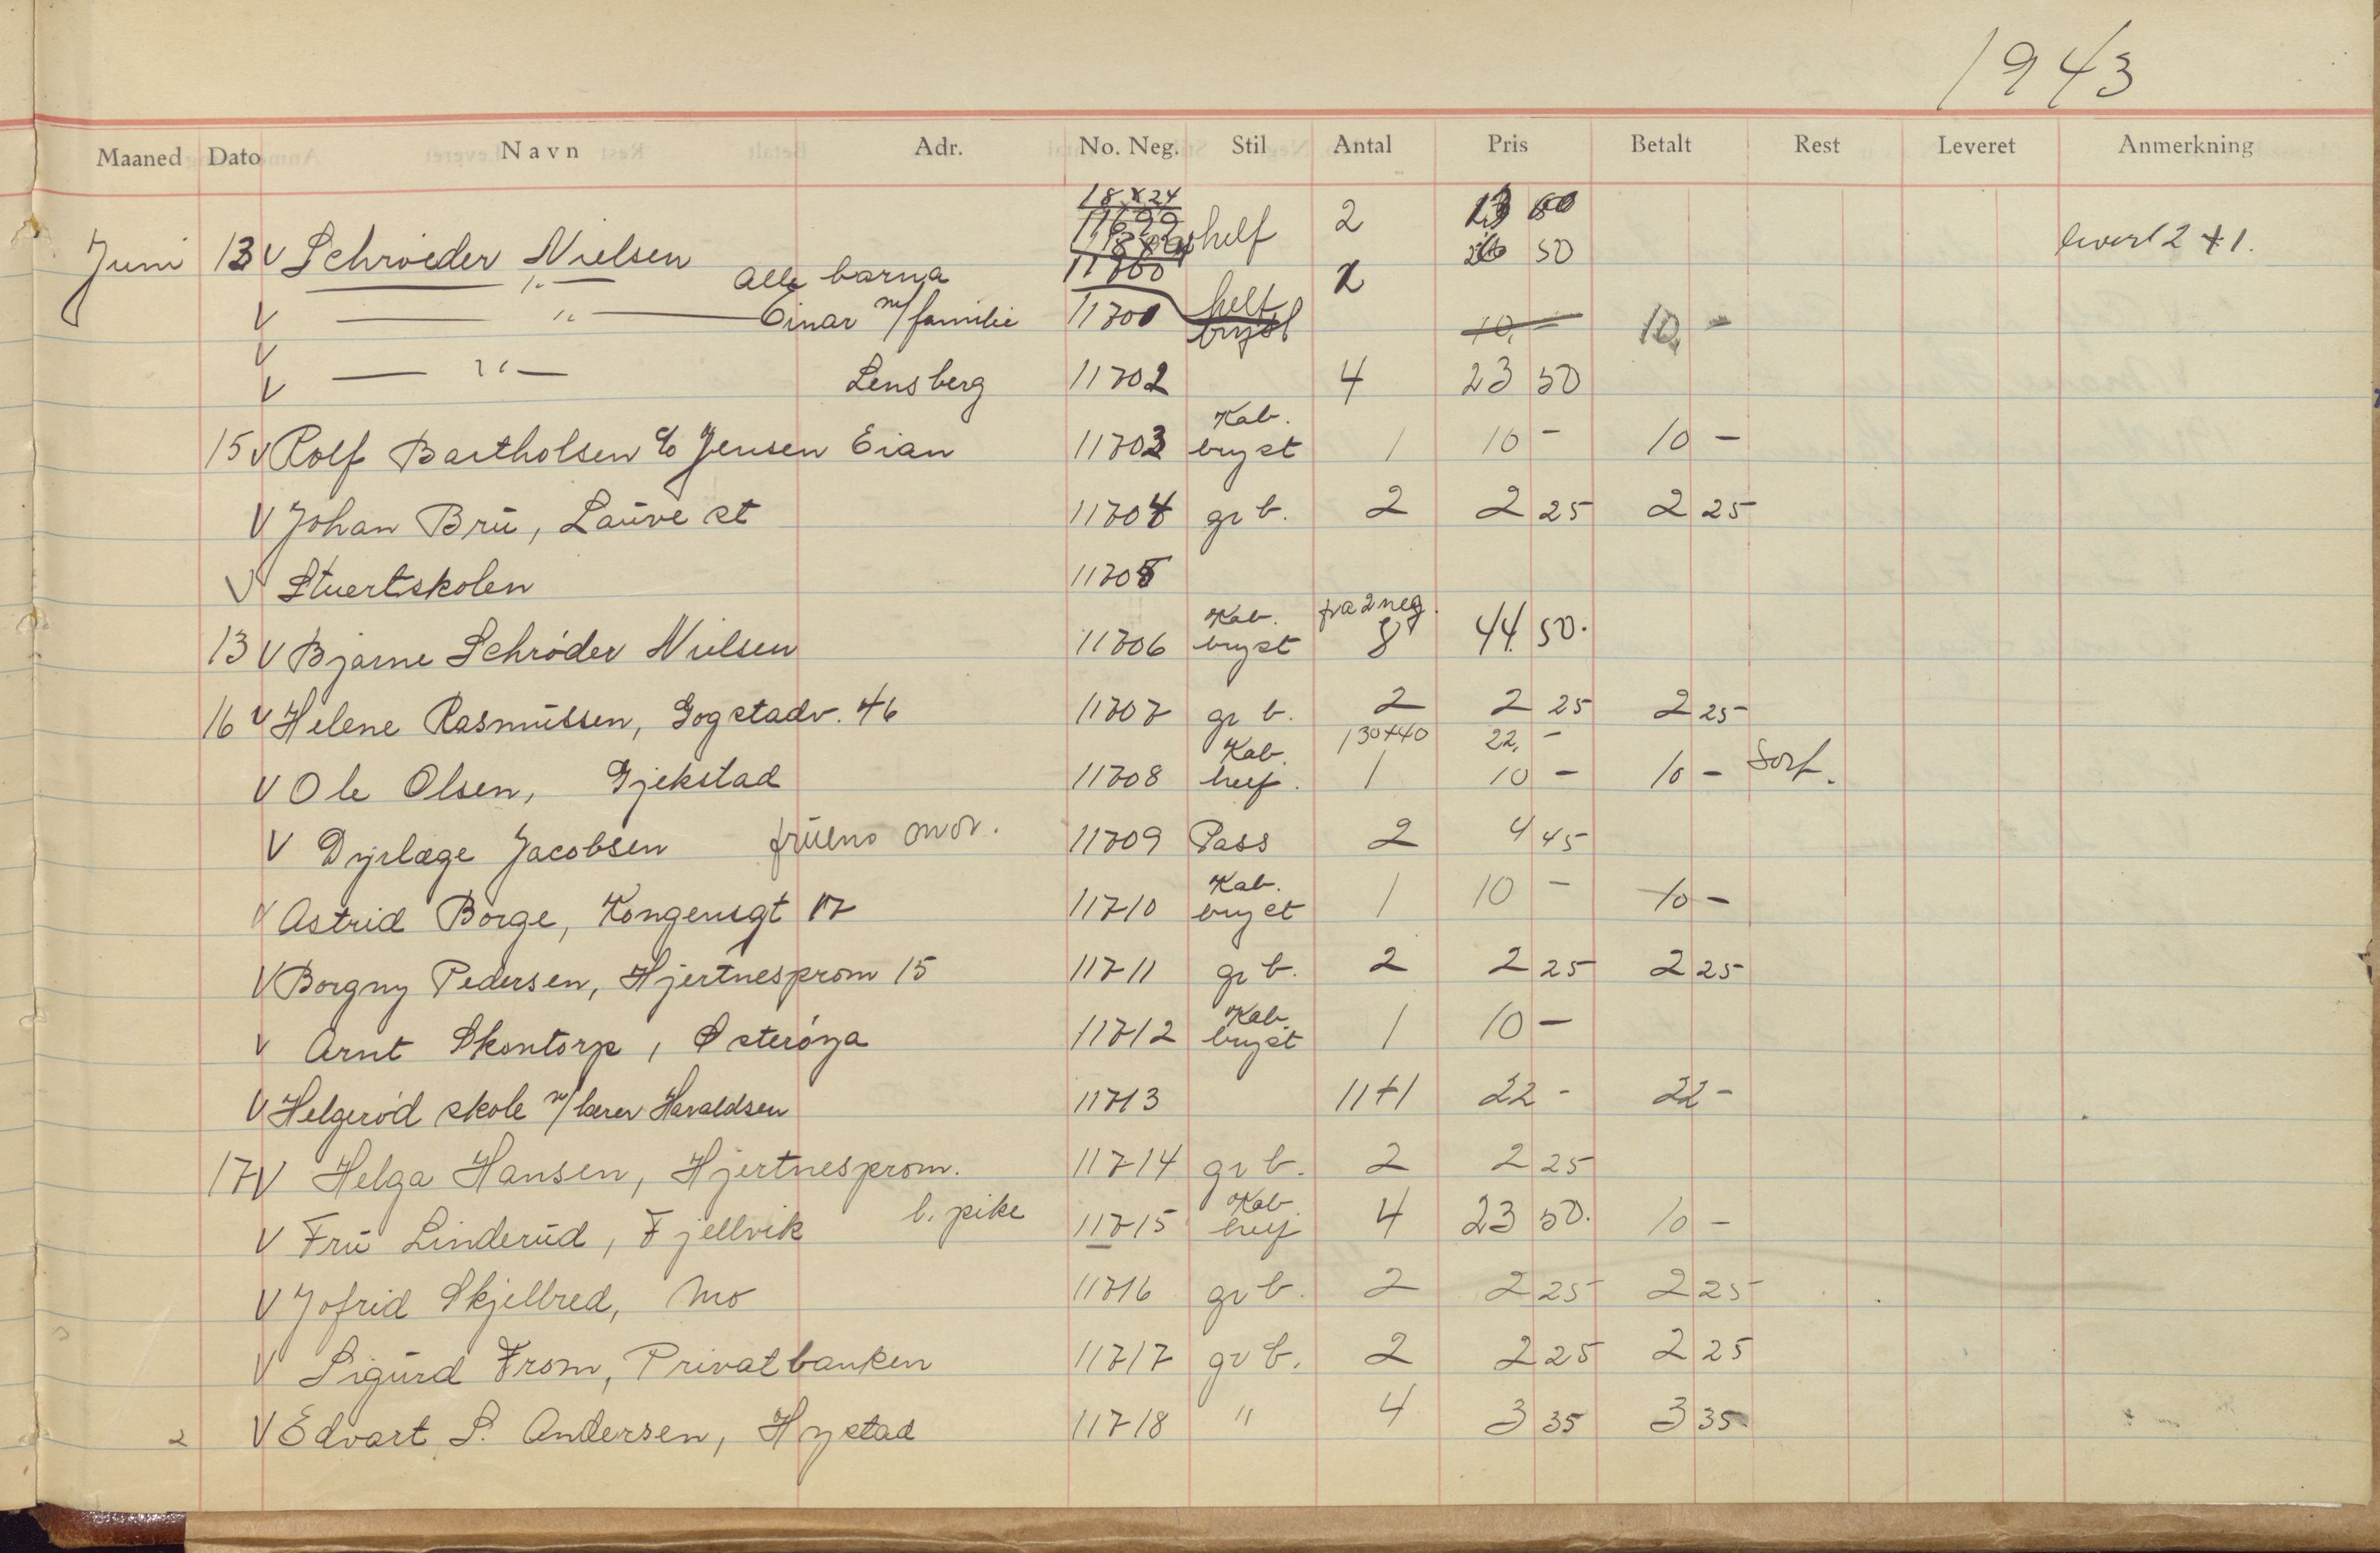 1943
Maaned Dato Navn Adr. No. Neg. Stil Antal Pris Betalt Rest Leveret Anmerkning
18x24
Juni 13 V Schrøder Nielsen 11699 helf 2 13 60 levert 2 + 1.
—„— alle barna 11700 2 26 50
V —„— Einar m/familie 11701 helf bryst 10,- 10,-
V
V —„— Lensberg 11702 4 23 50
15 V Rolf Bartholsen c/o Jensen Eian 11703 Kab. bryst 1 10 - 10 -
V Johan Brū, Laūve st 11704 gr b. 2 2 25 2 25
V Stuertskolen 11705
13 V Bjarne Schrøder Nielsen 11706 Kab. bryst fra 2 neg. 8 44 50.
16 V Helene Rasmūssen, Gogstadv. 46 11707 gr b. 2 2 25 2 25
1 30+40 22,-
V Ole Olsen, Gjekstad 11708 Kab. helf. 1 10 - 10 - Sort.
V Dyrlæge Jacobsen frūens mor. 11709 Pass 2 4 45
V Astrid Borge, Kongensgt 17 11710 Kab. bryst 1 10 - 10 -
V Borgny Pedersen, Hjertnesprom 15 11711 gr b. 2 2 25 2 25
V Arnt Skontorp, Østerøya 11712 Kab. bryst 1 10 -
V Helgerød skole m/lærer Haraldsen 11713 11+1 22 - 22 -
17 V Helga Hansen, Hjertnesprom. 11714 gr b. 2 2 25
V Frū Linderūd, Fjellvik l. pike 11715 Kab. helf 4 23 50. 10 -
V Jofrid Skjelbred, Mo 11716 gr b. 2 2 25 2 25
V Sigūrd From, Privatbanken 11717 gr b. 2 2 25 2 25
2 V Edvart S. Andersen, Hystad 11718 " 4 3 35 3 35